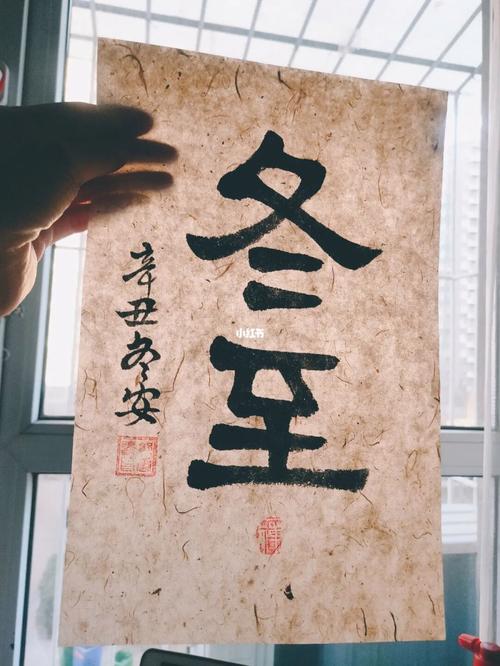 冬至
辛丑冬安
小红书